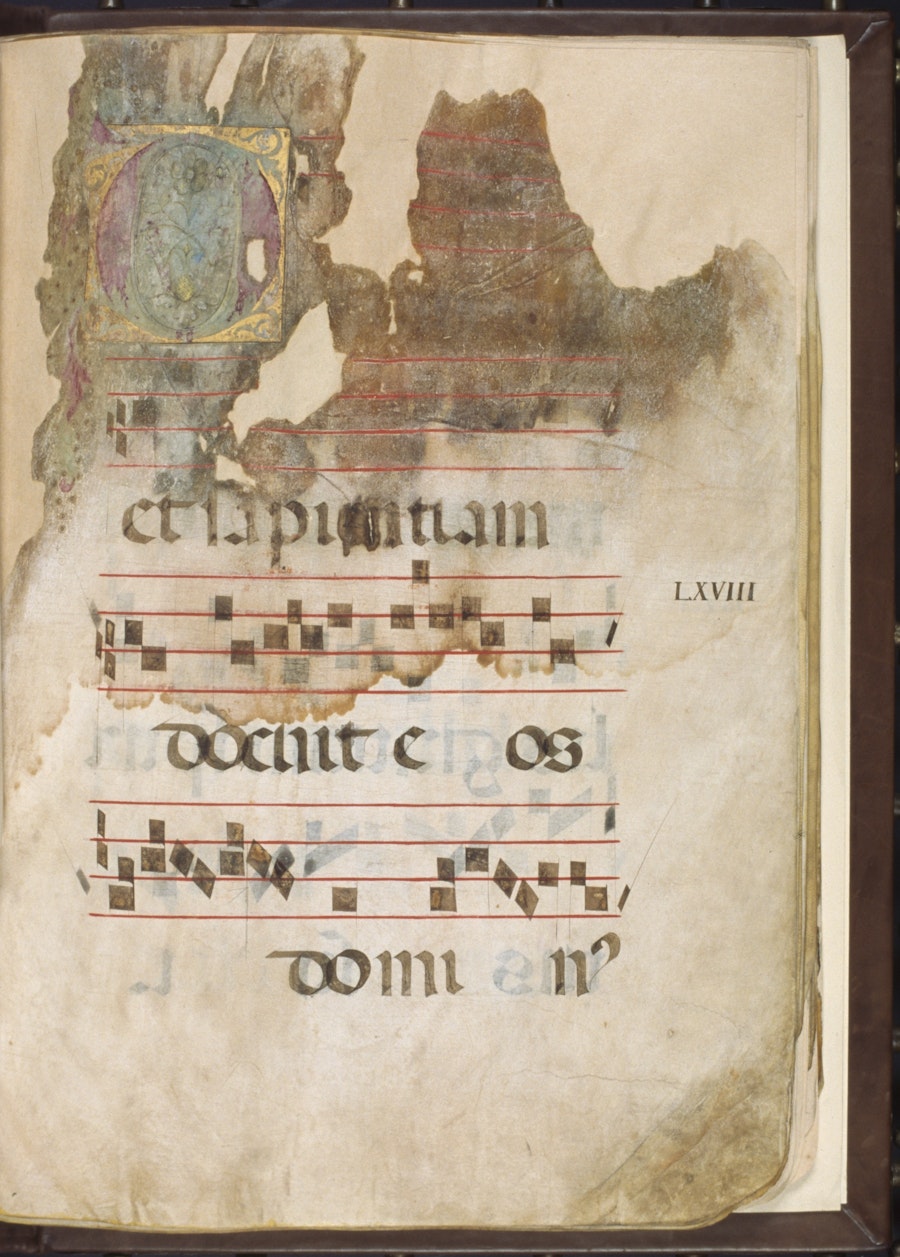 et sapientiam
LXVIII
docuit e os
domi nꝰ